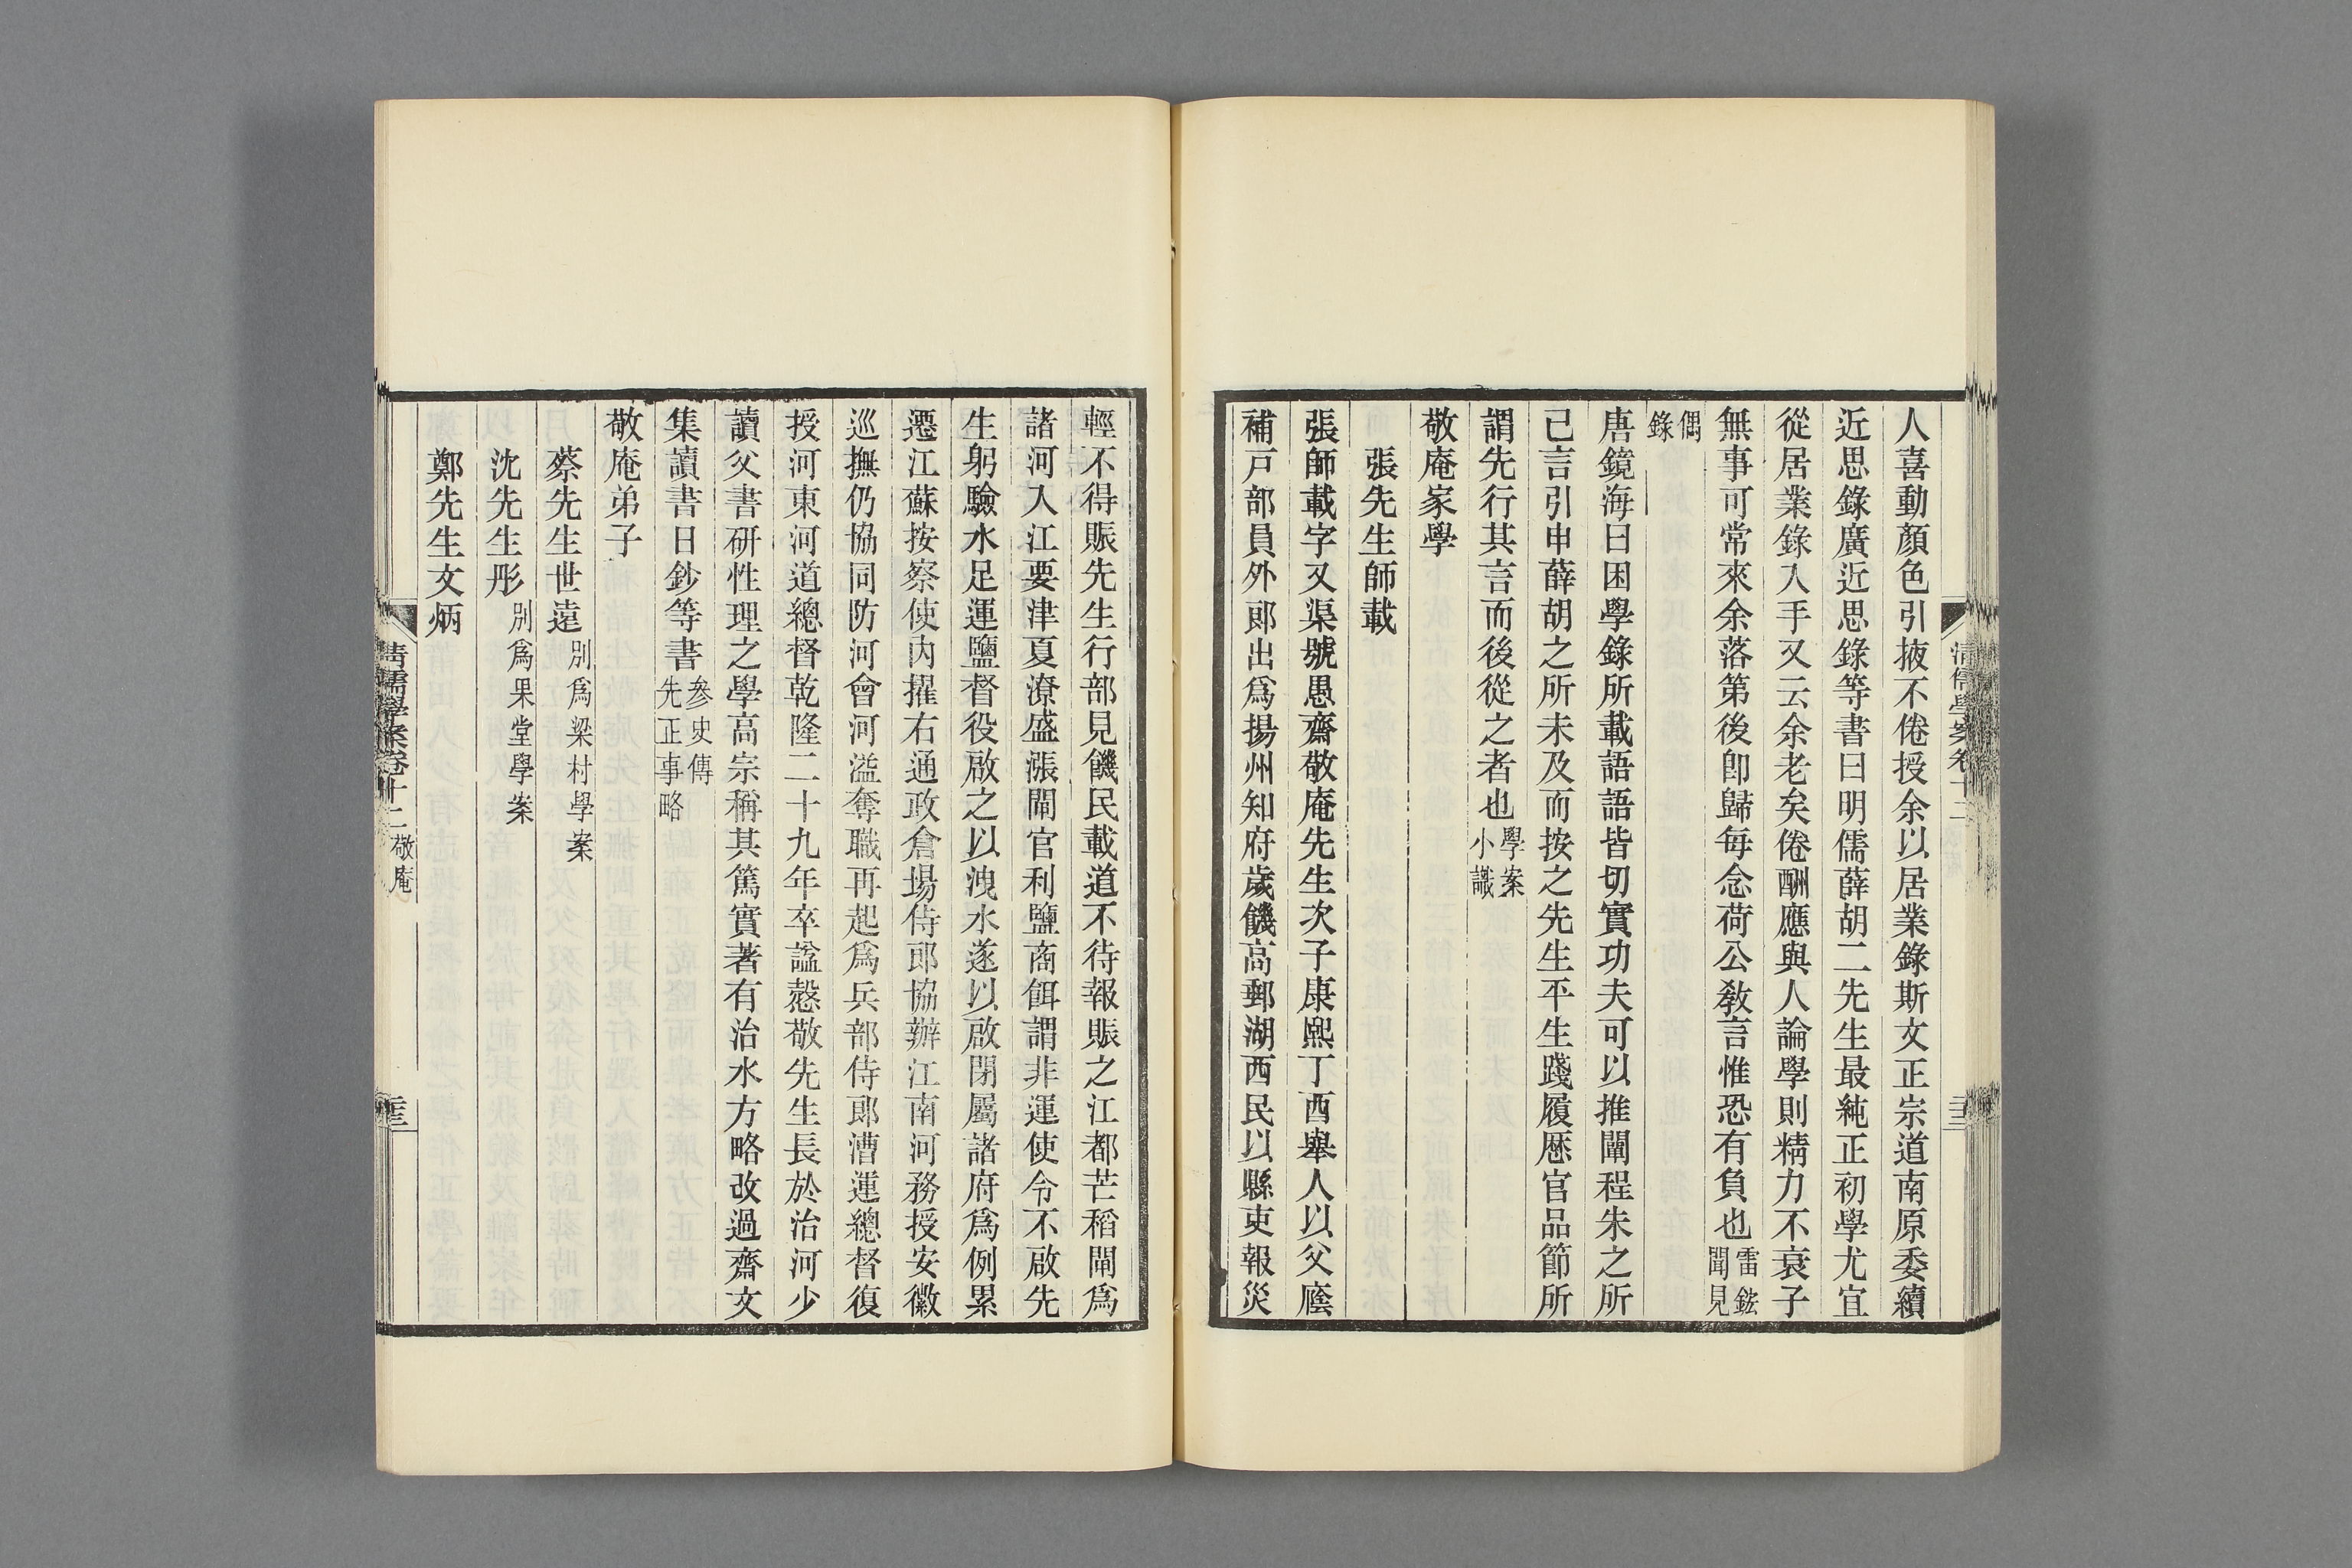 人喜動顏色引掖不倦授余以居業錄斯文正宗道南原委續
近思錄廣近思錄等書曰明儒薛胡二先生最純正初學尤宜
從居業錄入手又云余老矣倦酬應與人論學則精力不衰子
無事可常來余落第後卽歸每念荷公敎言惟恐有負也雷鋐聞見
偶錄
唐鏡海曰困學錄所載語語皆切實功夫可以推闡程朱之所
已言引申薛胡之所未及而按之先生平生踐履歷官品節所
謂先行其言而後從之者也學案小識
敬庵家學
張先生師載
張師載字又渠號愚齋敬庵先生次子康熙丁酉舉人以父廕
補戸部員外郎出爲揚州知府歲饑高郵湖西民以縣吏報災
輕不得賑先生行部見饑民載道不待報賑之江都芒稻閘爲
諸河入江要津夏潦盛漲閘官利鹽商餌謂非運使令不啟先
生躬驗水足運鹽督役啟之以洩水遂以啟閉屬諸府爲例累
遷江蘇按察使內擢右通政倉場侍郎協辦江南河務授安徽
巡撫仍協同防河會河溢奪職再起爲兵部侍郎漕運總督復
授河東河道總督乾隆二十九年卒諡愨敬先生長於治河少
讀父書研性理之學高宗稱其篤實著有治水方略改過齋文
集讀書日鈔等書參史傳先正事略
敬庵弟子
蔡先生世遠別爲梁村學案
沈先生彤別爲果堂學案
鄭先生文炳
清儒學案卷十二 敬庵